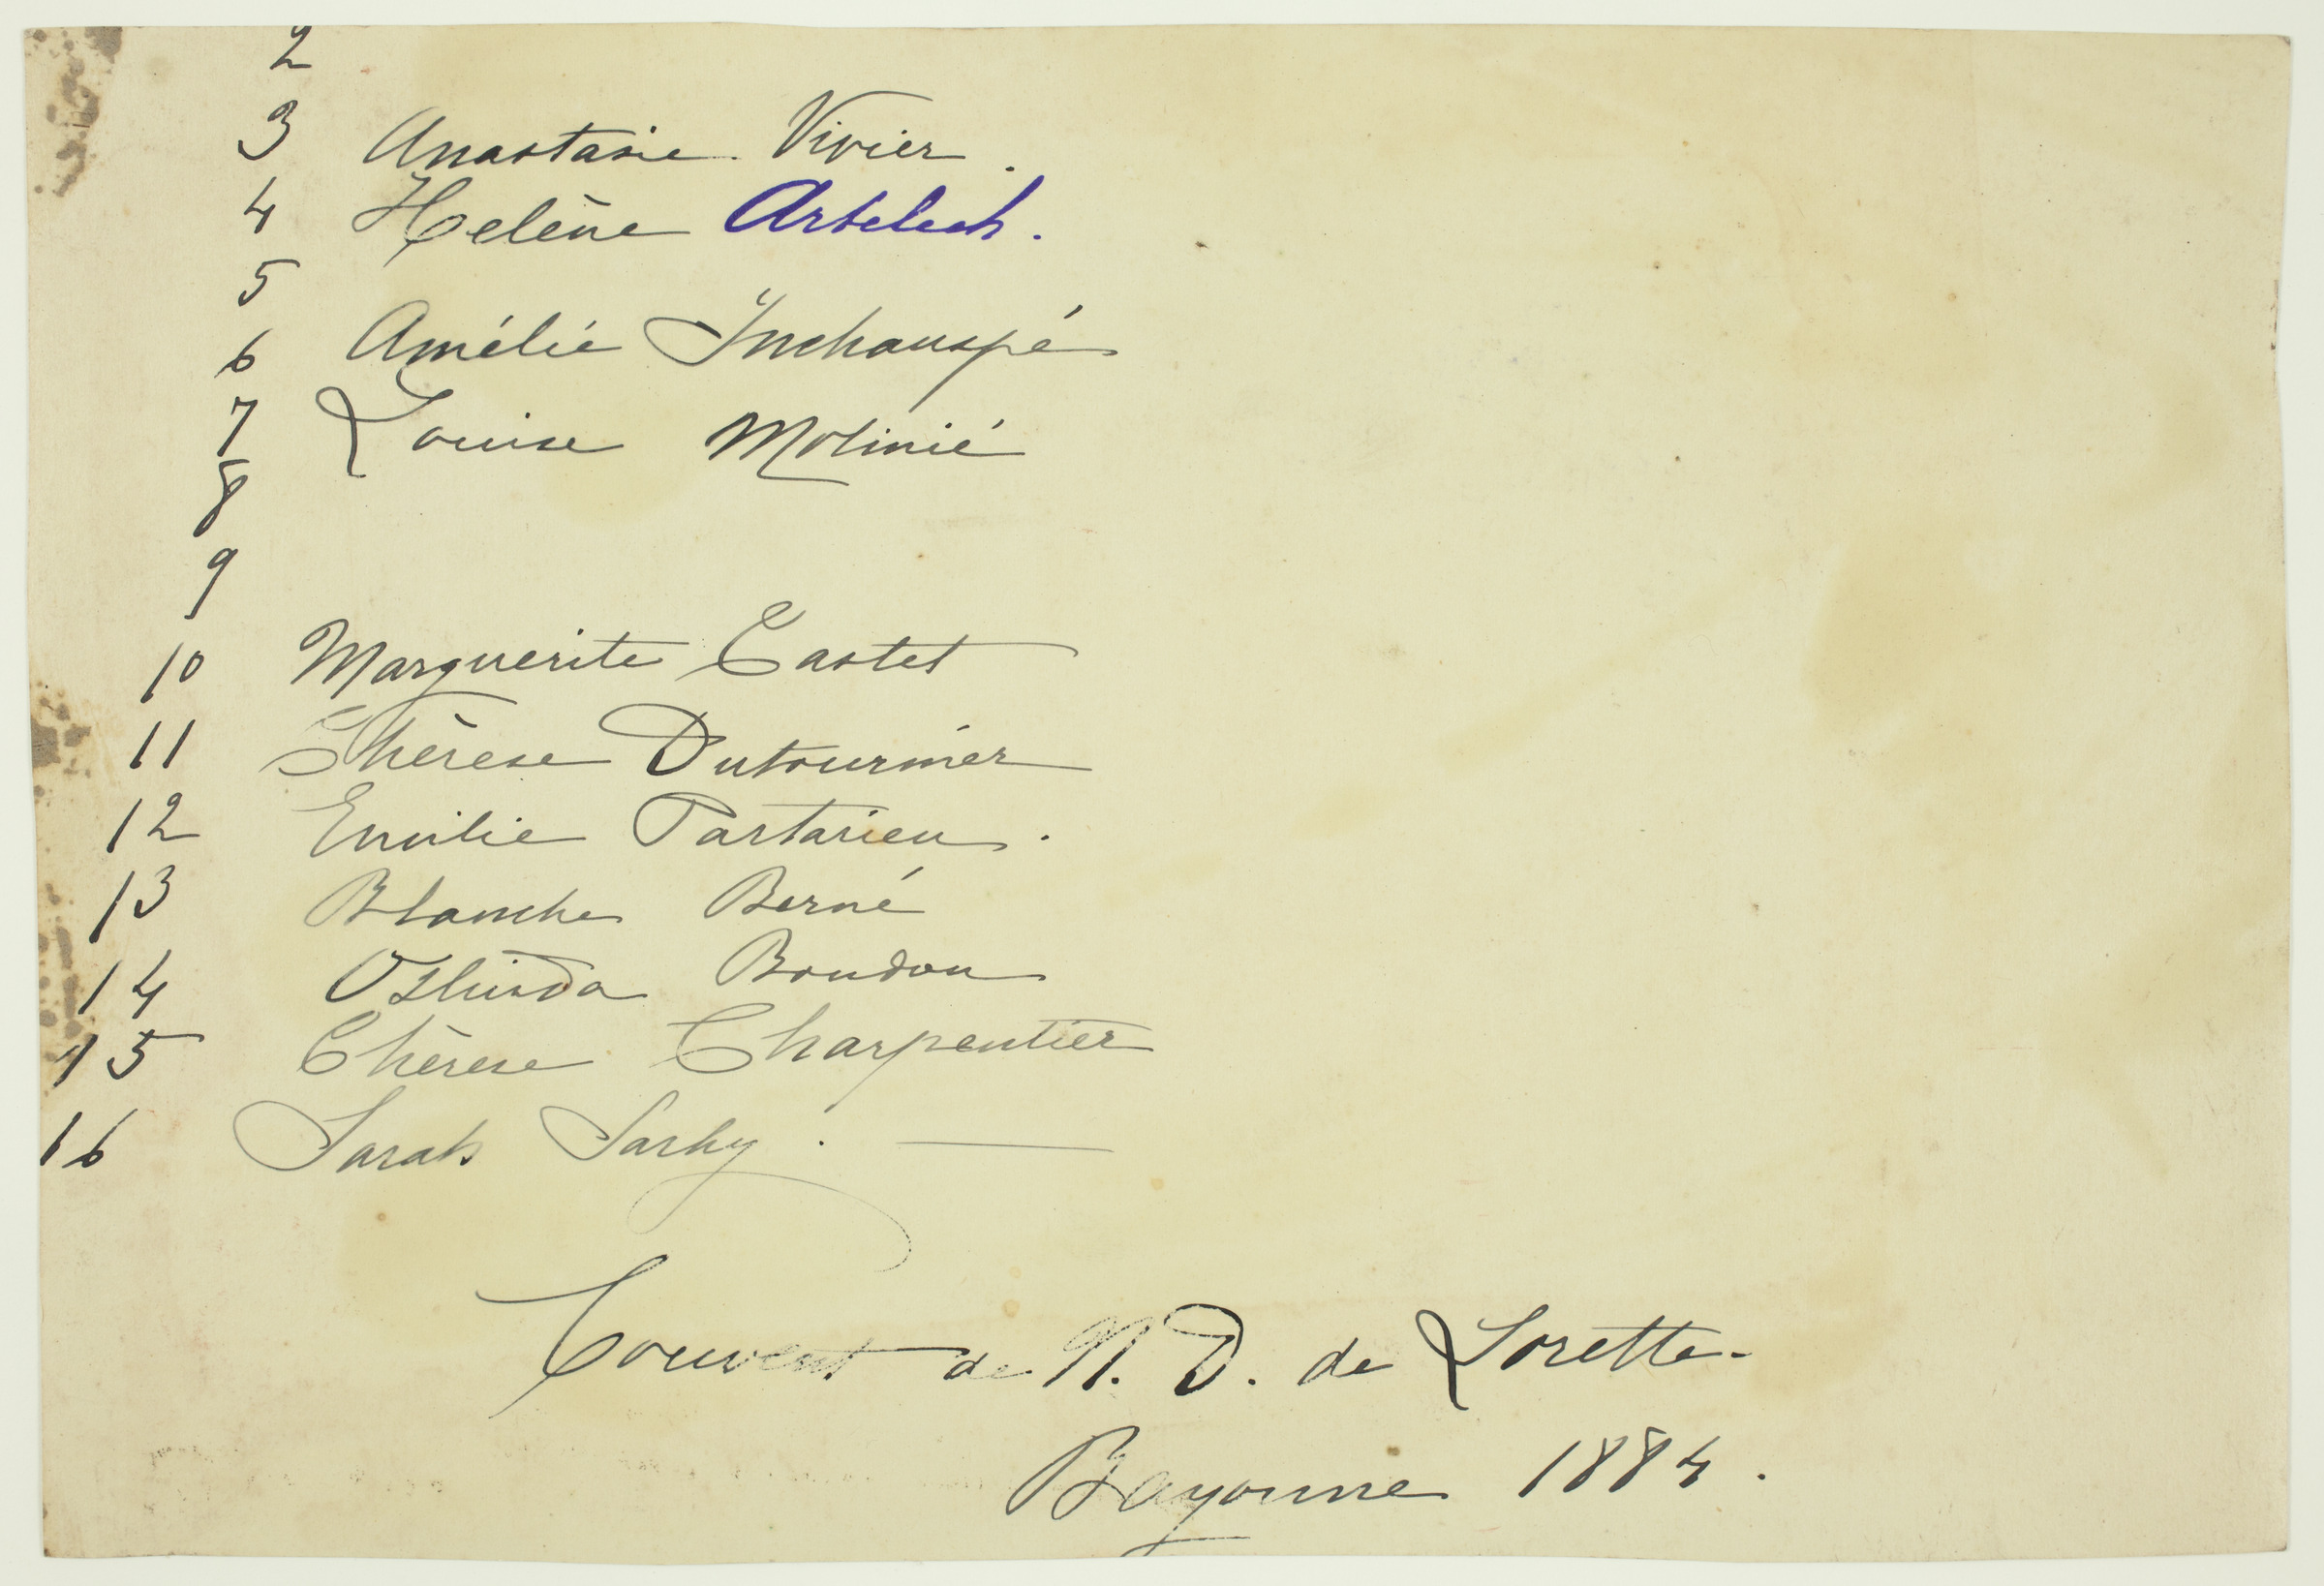 2
3 Anastasie Vivier.
4 Helène Artelech.
5
6 Amélié Inchauspé
7 Louise Molinié
8
9
10 Marguerite Castet
11 Thérèse Dutournier
12 Emilie Partarieu.
13 Blanche Berné
14 Boudou
15 Thérèse Charpentier
16 Sarah Sarhy. —
Couvent de N. D. de Lorette.
Bayonne 1884.